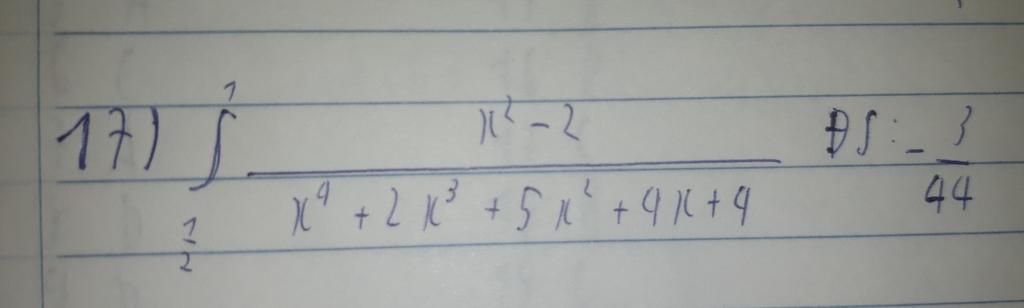 17) ∫_{1/2}^{1} (x² - 2)/(x⁴ + 2x³ + 5x² + 4x + 4) ĐS: -3/44